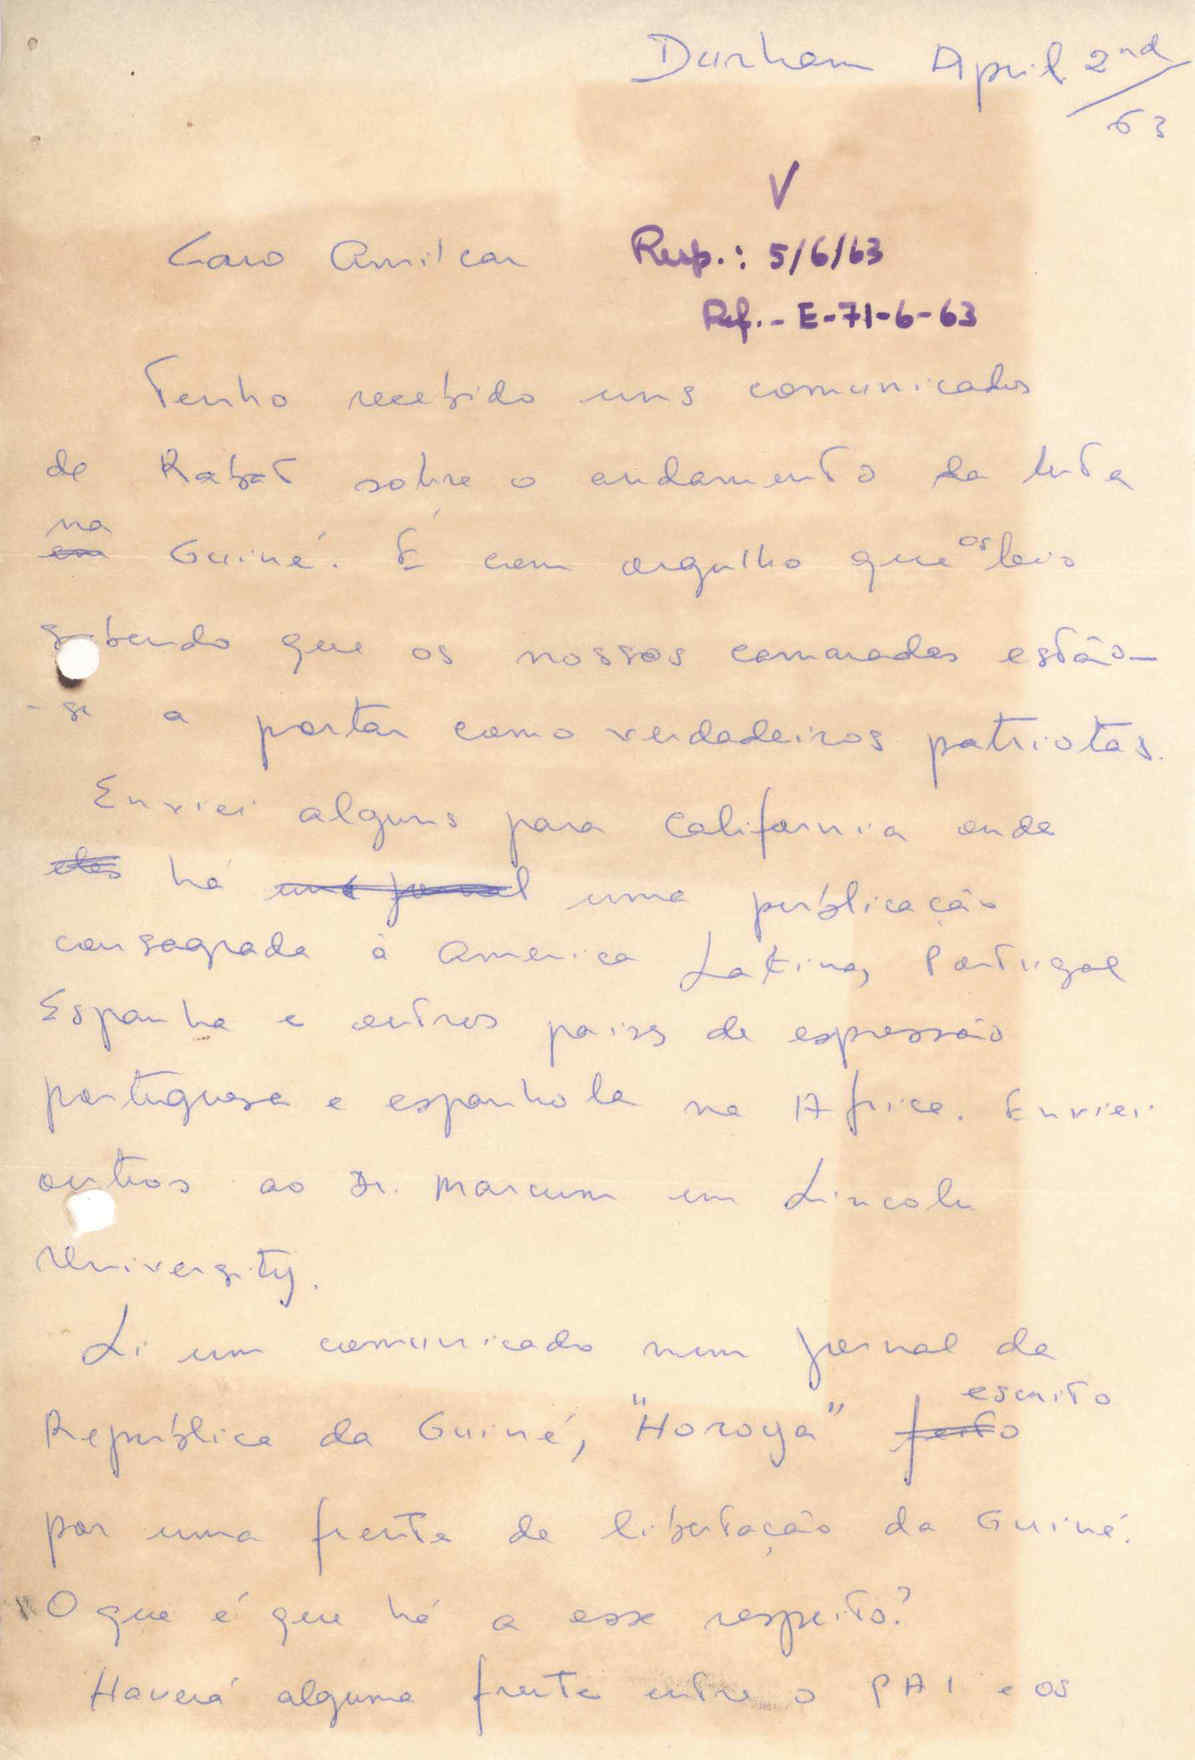 Durham April 2nd
/63
V
Caro Amilcar Resp.: 5/6/63
Ref. - E-71-6-63
Tenho recebido uns comunicados
de Rabat sobre o andamento da luta
na
em Guiné. É com orgulho que os leio
sabendo que os nossos camaradas estão-
-se a portar como verdadeiros patriotas.
Enviei alguns para California onde
eles há um jornal uma públicação
consagrada à America Latina, Portugal
Espanha e outros paises de expressão
portuguesa e espanhola na Africa. Enviei
outros ao Dr. Marcum em Lincoln
University.
Li um comunicado num jornal da
escrito
República da Guiné, "Horoya" feito
por uma frente de libertação da Guiné.
O que é que há a esse respeito?
Haverá alguma frente entre o PAI e os